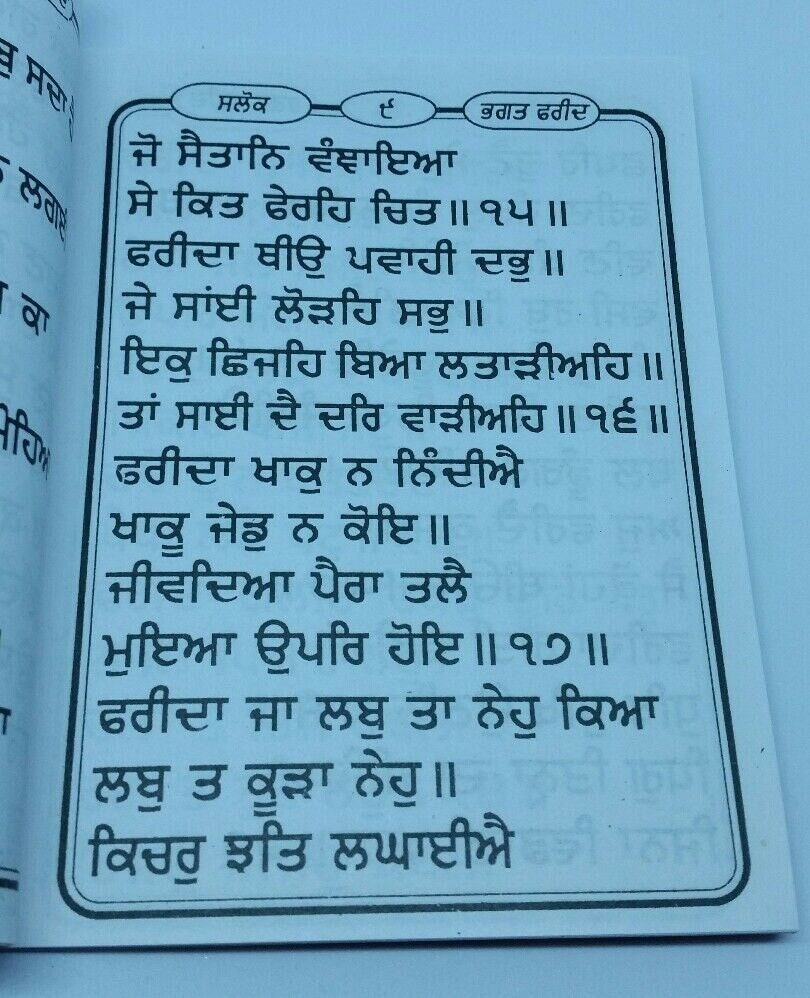 ਸਲੋਕ ੯ ਭਗਤ ਫਰੀਦ
ਜੋ ਸੈਤਾਨਿ ਵੰਞਾਇਆ
ਸੇ ਕਿਤ ਫੇਰਹਿ ਚਿਤ॥੧੫॥
ਫਰੀਦਾ ਥੀਉ ਪਵਾਹੀ ਦਭੁ॥
ਜੇ ਸਾਂਈ ਲੋੜਹਿ ਸਭੁ॥
ਇਕੁ ਛਿਜਹਿ ਬਿਆ ਲਤਾੜੀਅਹਿ॥
ਤਾਂ ਸਾਈ ਦੈ ਦਰਿ ਵਾੜੀਅਹਿ॥੧੬॥
ਫਰੀਦਾ ਖਾਕੁ ਨ ਨਿੰਦੀਐ
ਖਾਕੂ ਜੇਡੁ ਨ ਕੋਇ॥
ਜੀਵਦਿਆ ਪੈਰਾ ਤਲੈ
ਮੁਇਆ ਉਪਰਿ ਹੋਇ॥੧੭॥
ਫਰੀਦਾ ਜਾ ਲਬੁ ਤਾ ਨੇਹੁ ਕਿਆ
ਲਬੁ ਤ ਕੂੜਾ ਨੇਹੁ॥
ਕਿਚਰੁ ਝਤਿ ਲਘਾਈਐ